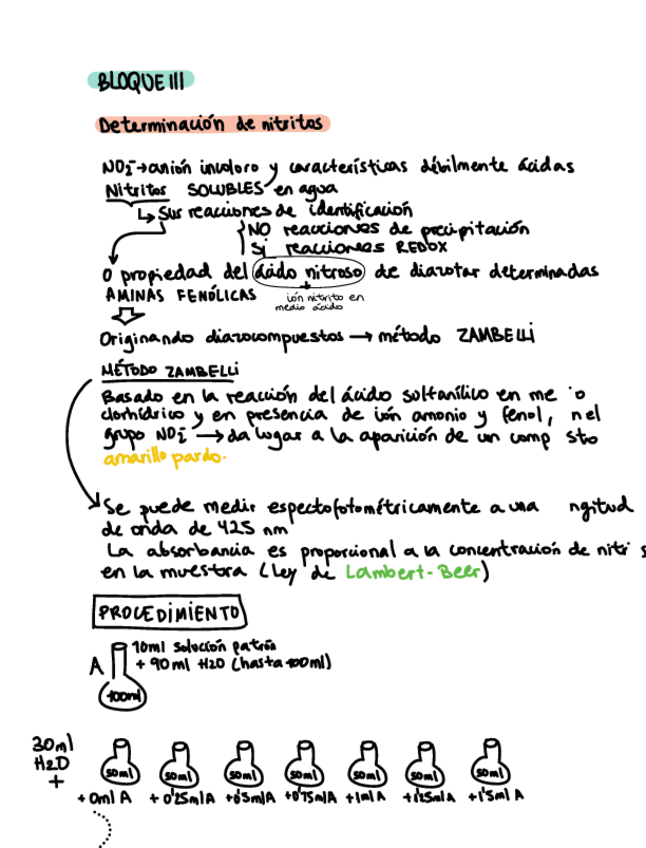 BLOQUE III
Determinación de nitritos
NO₂⁻→anión incoloro y características débilmente ácidas
Nitritos SOLUBLES en agua
↳ Sus reacciones de identificación
NO reacciones de precipitación
SI reacciones REDOX
O propiedad del ácido nitroso de diazotar determinadas
AMINAS FENÓLICAS
ión nitrito en
medio ácido
Originando diazocompuestos → método ZAMBELLI
MÉTODO ZAMBELLI
Basado en la reacción del ácido sulfanílico en me o
clorhídrico y en presencia de ión amonio y fenol, n el
grupo NO₂⁻ → da lugar a la aparición de un comp sto
amarillo pardo.
Se puede medir espectofotométricamente a una ngitud
de onda de 425 nm
La absorbancia es proporcional a la concentración de nitri s
en la muestra (Ley de Lambert-Beer)
PROCEDIMIENTO
10ml solución patrón
A + 90ml H2O (hasta 100ml)
100ml
30ml
H2O
+
50ml 50ml 50ml 50ml 50ml 50ml 50ml
+0ml A +0'25ml A +0'5ml A +0'75ml A +1ml A +1'25ml A +1'5ml A